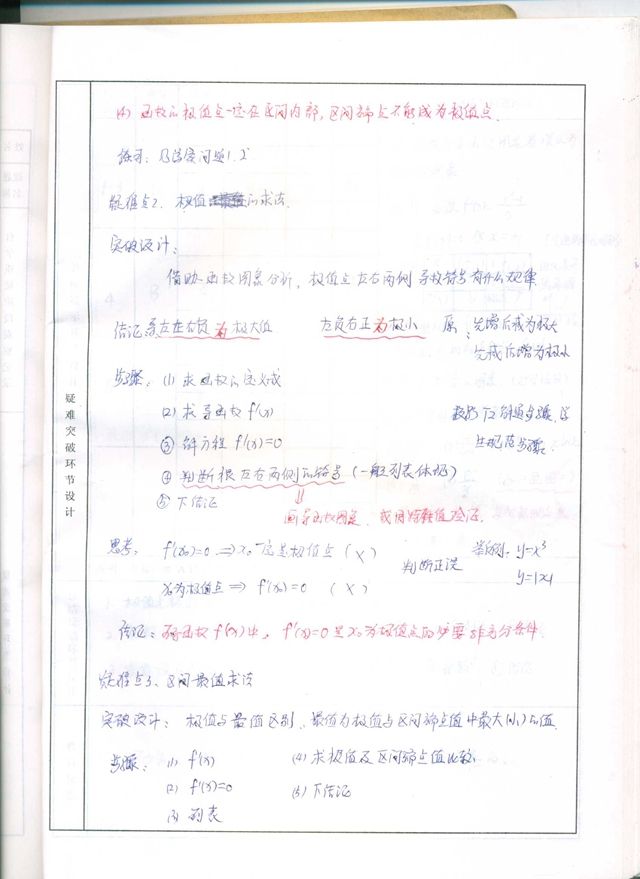 (4) 函数的极值点一定在区间内部,区间端点不能成为极值点.
练习: 问题1.2
疑难点2. 极值的求法.
突破设计:
借助函数图象分析, 极值点左右两侧导数符号有什么规律
结论 左正右负为极大值 左负右正为极小 原: 先增后减为极大
先减后增为极小
步骤: (1) 求函数的定义域
(2) 求导函数 f'(x)
③ 解方程 f'(x)=0
④ 判断根左右两侧的符号 (一般列表体现)
⑤ 下结论
步骤, 学
生规范步骤.
画导函数图象, 或用特殊值验证.
思考: f'(x₀)=0 ⇒ x₀一定是极值点 (×) 判断正误 举例: y=x³
x₀为极值点 ⇒ f'(x₀)=0 (×) y=|x|
结论: 函数f(x)中, f'(x)=0是x₀为极值点的必要非充分条件.
疑难点3. 区间最值求法
突破设计: 极值与最值区别, 最值为极值与区间端点值中最大(小)的值.
步骤: (1) f'(x) (4) 求极值及区间端点值比较.
(2) f'(x)=0 (5) 下结论
(3) 列表
疑难突破环节设计